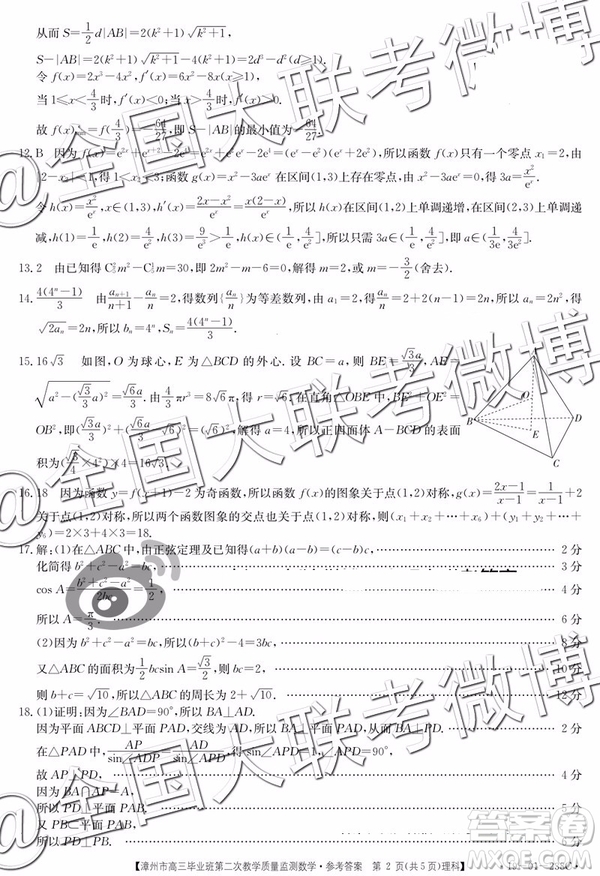 从而 S=1/2 d|AB|=2(k²+1)√(k²+1),
S-|AB|=2(k²+1)√(k²+1)-4(k²+1)=2d³-d²·
令 f(x)=2x³-4x², f′(x)=6x
当1≤x<4/3时, f′(x)<0;当x>4/3时
故 f(x)≥f(4/3)=-64/27,即 S-|AB|的最小值为-64/27
12.B 因为
所以函数 f(x)只有一个零点 x₁=2,由
|2-x₂|<1,得 1<x₂<3;函数 g(x)=x²-3aeˣ在区间(1,3)上存在零点,由 x²-3aeˣ=0,得 3a=x²/eˣ.
令 h(x)=x²/eˣ,x∈(1,3),h′(x)=(2x-x²)/eˣ=x(2-x)/eˣ,所以 h(x)在区间(1,2)上单调递增,在区间(2,3)上单调递
减,h(1)=1/e,h(2)=4/e²,h(3)=9/e³>1/e,所以 h(x)∈(1/e,4/e²],所以只需 3a∈(1/e,4/e²],即 a∈(1/3e,4/3e²].
13.2 由已知得 m²-C₅¹m=30,即 2m²-m-6=0,解得 m=2,或 m=-3/2(舍去).
14.4(4ⁿ-1)/3 由aₙ₊₁/(n+1)-aₙ/n=2,得数列{aₙ/n}为等差数列,由 a₁=2,得 =2+2(n-1)=2n,aₙ=2n²,得
√(2aₙ)=2n,所以 bₙ=4ⁿ,Sₙ=4(4ⁿ-1)/3.
15.16√3 如图,O 为球心,E 为△BCD 的外心.设 BC=a,则 BE=√3a/3,AE=
√(a²-(√3/3 a)²)=√6a/3.由4/3πr³=8√6π,得 r=√6.在直角△OBE 中,BE²+OE²=
OB²,即(√3a/3)²+(√6a/3-√6)²=(√6)²,解得 a=4.所以正四面体 A-BCD 的表面
积为(√3/4×4²)×4=16√3.
A
O
B
D
E
C
16.18 因为函数 y=f(x+1)-2 为奇函数,所以函数 f(x)的图象关于点(1,2)对称,g(x)=(2x-1)/(x-1)=1/(x-1)+2
关于点(1,2)对称,所以两个函数图象的交点也关于点(1,2)对称,则(x₁+x₂+…+x₆)+(y₁+y₂+…+
y₆)=2×3+4×3=18.
17.解:(1)在△ABC 中,由正弦定理及已知得(a+b)(a-b)=(c-b)c, 2 分
化简得 b²+c²-a²=bc, 3 分
cos A=(b²+c²-a²)/2bc=1/2, 4 分
所以 A=π/3. 6 分
(2)因为 b²+c²-a²=bc,所以(b+c)²-4=3bc, 8 分
又△ABC 的面积为1/2bcsin A=√3/2, 10 分
则 b+c=√10,所以△ABC 的周长为 2+√10. 12 分
18.(1)证明:因为∠BAD=90°,所以 BA⊥AD.
因为平面 ABCD⊥平面 PAD,交线为 AD,所以 BA⊥平面 PAD,从而 BA⊥PD. 2 分
在△PAD 中,AP/sin∠ADP=AD/sin∠APD,得 sin∠APD=1,∠APD=90°,
故 AP⊥PD, 4 分
因为 BA∩AP=A,
所以 PD⊥平面 PAB, 5 分
因为 PD⊂平面 PCD,所以平面
【漳州市高三毕业班第二次教学质量监测数学·参考答案 第 2 页(共 5 页)理科】
@全国大联考微博
@全国大联考微博
@全国大联考微博